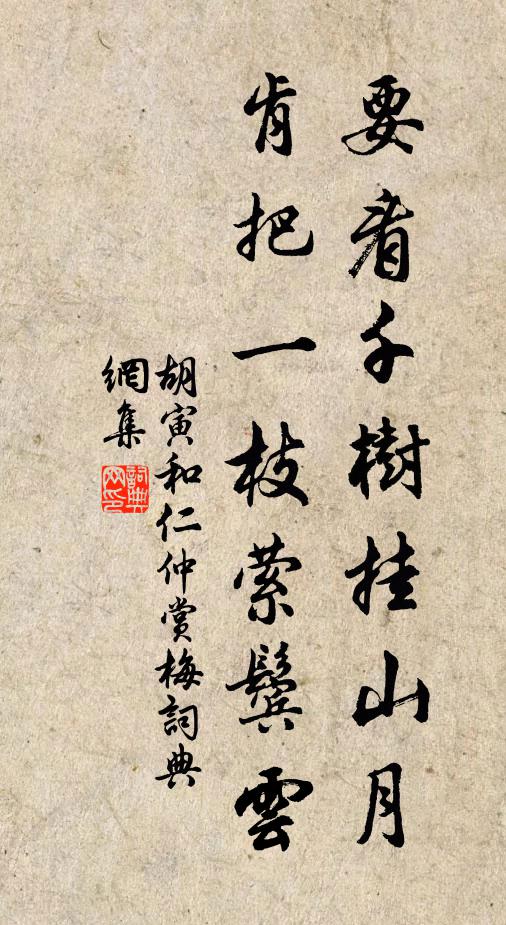 要看千樹挂山月
肯把一枝縈鬢雲
胡寅和仁仲賞梅詞典
網集
詞典
网印